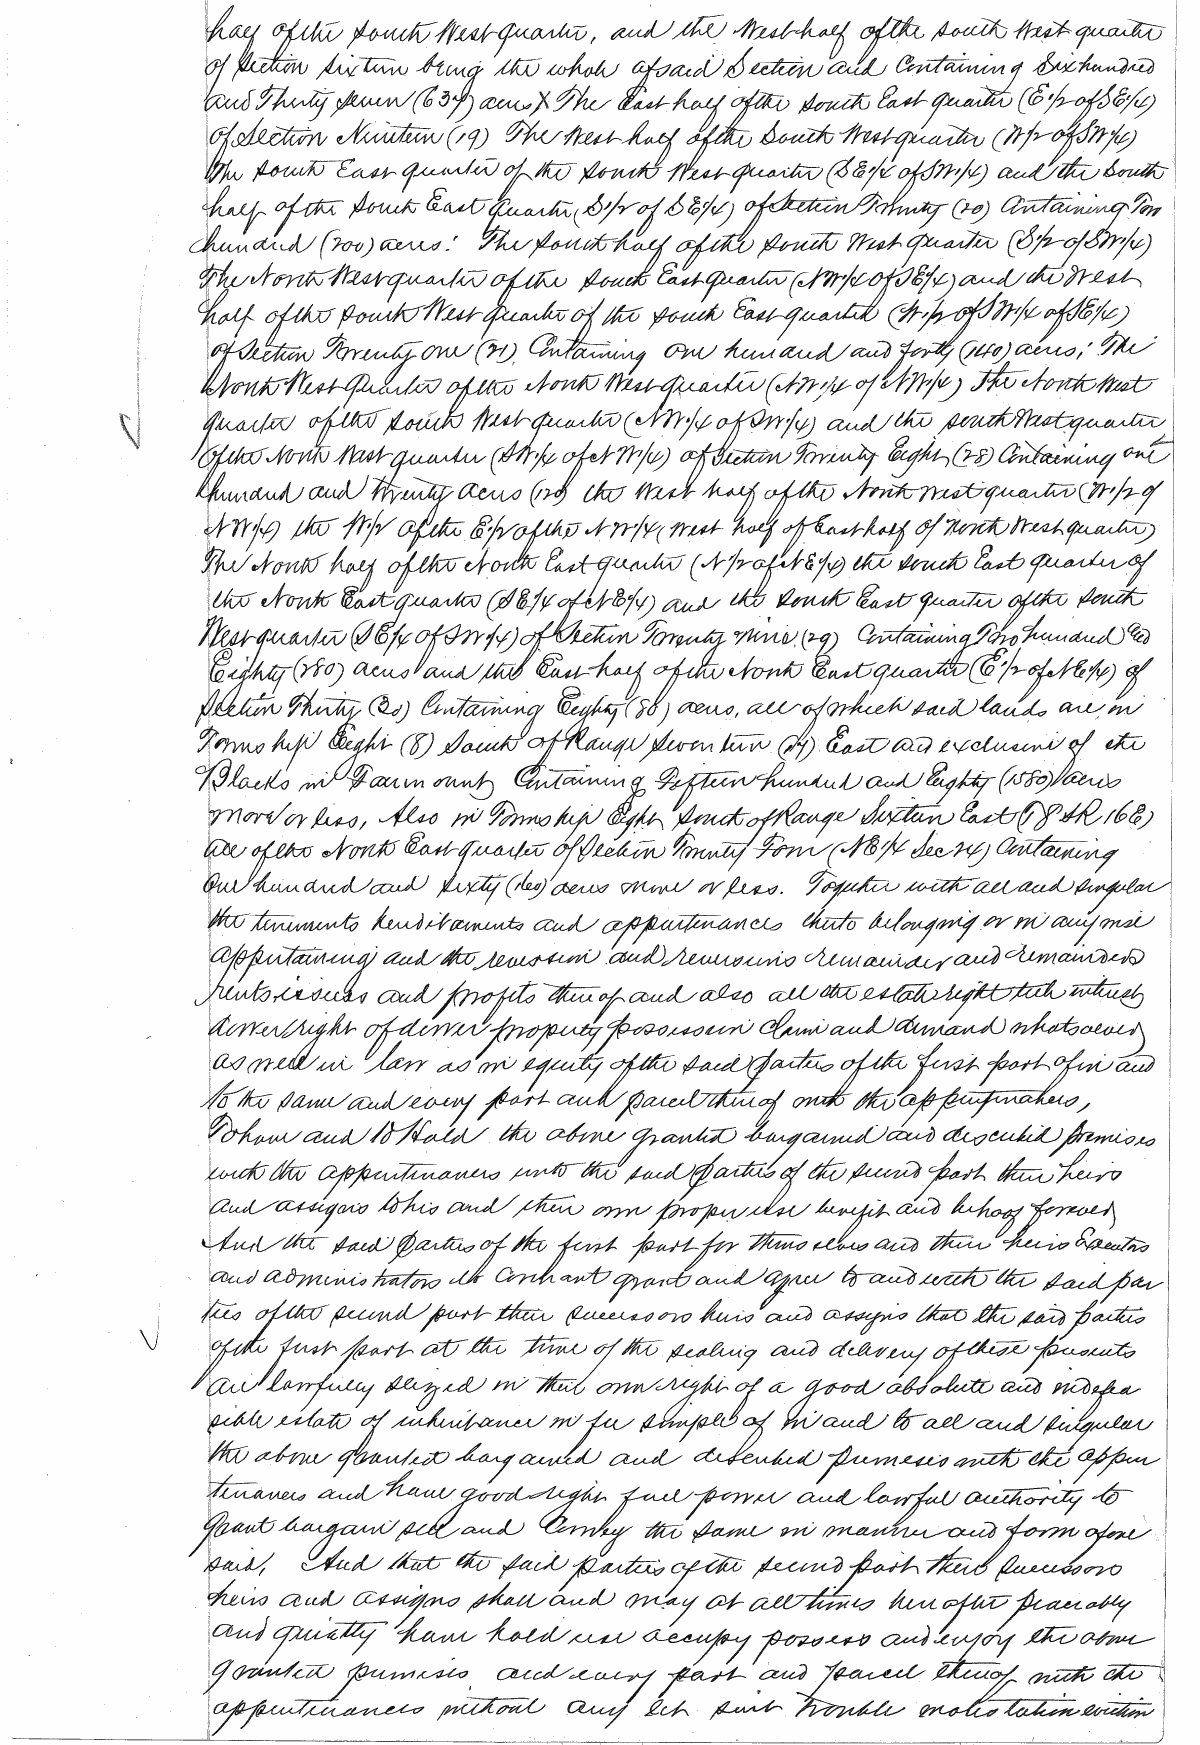 half of the South West quarter, and the West half of the South West quarter
of Section Sixteen being the whole of said Section and Containing Six hundred
and Thirty Seven (637) acres X The East half of the South East quarter (E1/2 of SE1/4)
of Section Nineteen (19) The West half of the South West quarter (W1/2 of SW1/4)
The South East quarter of the South West quarter (SE1/4 of SW1/4) and the South
half of the South East Quarter (S1/2 of SE1/4) of Section Twenty (20) Containing Two
hundred (200) acres: The South half of the South West quarter (S1/2 of SW1/4)
The North West quarter of the South East Quarter (NW1/4 of SE1/4) and the West
half of the South West quarter of the South East quarter (W1/2 of SW1/4 of SE1/4)
of Section Twenty one (21) Containing one hundred and forty (140) acres; The
North West Quarter of the North West quarter (NW1/4 of NW1/4) The North West
quarter of the South West quarter (NW1/4 of SW1/4) and the South West quarter
of the North West quarter (SW1/4 of NW1/4) of Section Twenty Eight (28) Containing one
hundred and twenty acres (120) the West half of the North West quarter (W1/2 of
NW1/4) the W1/2 of the E1/2 of the NW1/4 (West half of East half of North West quarter)
The North half of the North East quarter (N1/2 of NE1/4) the South East quarter of
the North East quarter (SE1/4 of NE1/4) and the South East quarter of the South
West quarter (SE1/4 of SW1/4) of Section Twenty nine (29) Containing Two hundred and
Eighty (280) acres and the East half of the North East quarter (E1/2 of NE1/4) of
Section Thirty (30) Containing Eighty (80) acres, all of which said lands are in
Township Eight (8) South of Range Seventeen (17) East and exclusive of the
Blocks in Fairmount Containing Fifteen hundred and Eighty (1580) acres
more or less, Also in Township Eight South of Range Sixteen East (T 8 S R 16 E)
all of the North East quarter of Section Twenty Four (NE1/4 Sec 24) Containing
One hundred and sixty (160) acres more or less. Together with all and singular
the tenements hereditaments and appurtenances thereto belonging or in any wise
appertaining and the reversion and reversions remainder and remainders
rents issues and profits thereof and also all the estate right title interest
dower right of dower property possession claim and demand whatsoever
as well in law as in equity of the said parties of the first part of in and
to the same and every part and parcel thereof with the appurtenances,
To have and to Hold the above granted bargained and described premises
with the appurtenances unto the said parties of the second part their heirs
and assigns to his and their own proper use benefit and behoof forever
And the said parties of the first part for themselves and their heirs Executors
and administrators do Covenant grant and agree to and with the said par
ties of the second part their successors heirs and assigns that the said parties
of the first part at the time of the sealing and delivery of these presents
are lawfully seized in their own right of a good absolute and indefea
sible estate of inheritance in fee simple of in and to all and singular
the above granted bargained and described premises with the appur
tenances and have good right full power and lawful authority to
grant bargain sell and Convey the same in manner and form afore
said, And that the said parties of the second part their successors
heirs and assigns shall and may at all times hereafter peaceably
and quietly have hold use occupy possess and enjoy the above
granted premises and every part and parcel thereof with the
appurtenances without any let suit trouble molestation eviction